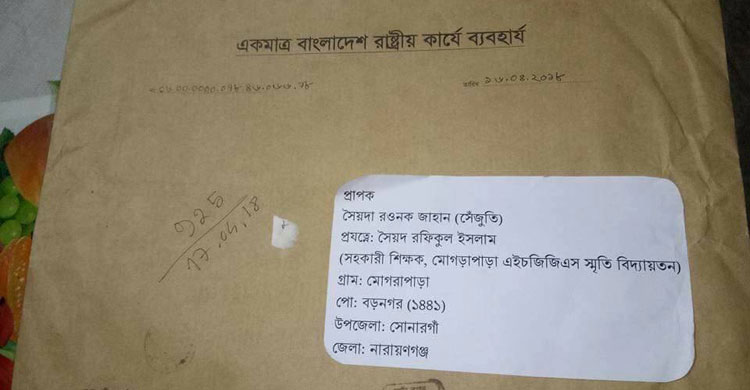 একমাত্র বাংলাদেশ রাষ্ট্রীয় কার্যে ব্যবহার্য
তারিখ ১৬.০৪.২০১৮
925
17.04.18
প্রাপক
সৈয়দা রওনক জাহান (সেঁজুতি)
প্রযত্নে: সৈয়দ রফিকুল ইসলাম
(সহকারী শিক্ষক, মোগড়াপাড়া এইচজিজিএস স্মৃতি বিদ্যায়তন)
গ্রাম: মোগরাপাড়া
পো: বড়নগর (১৪৪১)
উপজেলা: সোনারগাঁ
জেলা: নারায়ণগঞ্জ